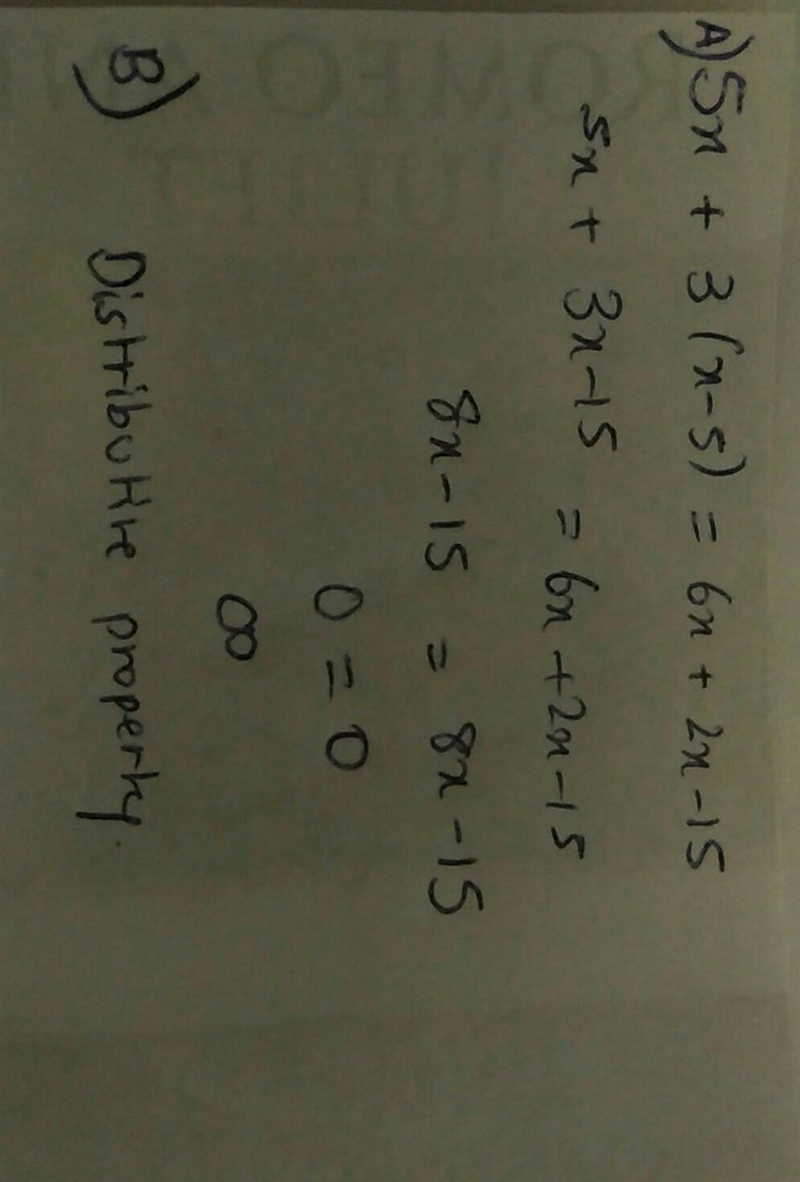 A) 5x + 3(x-5) = 6x + 2x-15
5x + 3x-15 = 6x +2x-15
8x-15 = 8x-15
0 = 0
∞
B) Distributive property.
ROMEO
JULIET